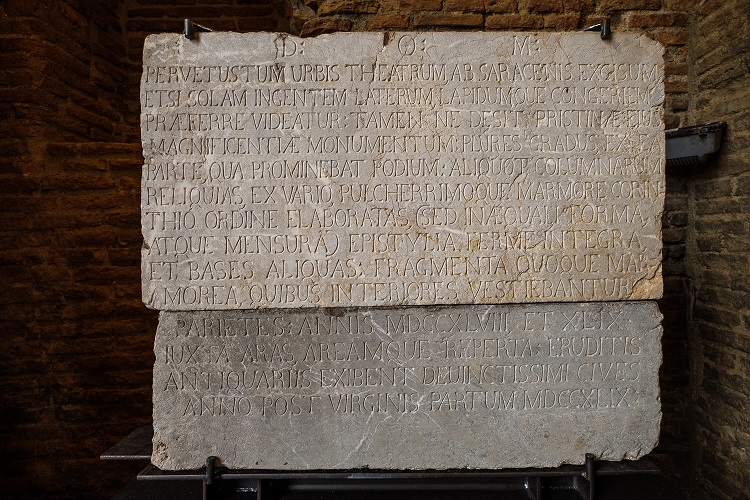 D: O: M:
PERVETUSTUM URBIS THEATRUM AB SARACENIS EXCISUM
ETSI SOLAM INGENTEM LATERUM, LAPIDUMQUE CONGERIEM
PRÆFERRE VIDEATUR: TAMEN NE DESIT PRISTINÆ EJUS
MAGNIFICENTIÆ MONUMENTUM: PLURES GRADUS EX EA
PARTE, QUA PROMINEBAT PODIUM: ALIQUOT COLUMNARUM
RELIQUIAS, EX VARIO, PULCHERRIMOQUE MARMORE CORIN
THIO ORDINE ELABORATAS (SED INÆQUALI FORMA,
ATQUE MENSURA) EPISTYLIA FERME INTEGRA,
ET BASES ALIQUAS: FRAGMENTA QUOQUE MAR
MOREA, QUIBUS INTERIORES VESTIEBANTUR
PARIETES: ANNIS MDCCXLVIII ET XLIX
IUXTA ARAS, AREAMQUE REPERTA ERUDITIS
ANTIQUARIIS EXIBENT DEVINCTISSIMI CIVES
ANNO POST VIRGINIS PARTUM MDCCXLIX